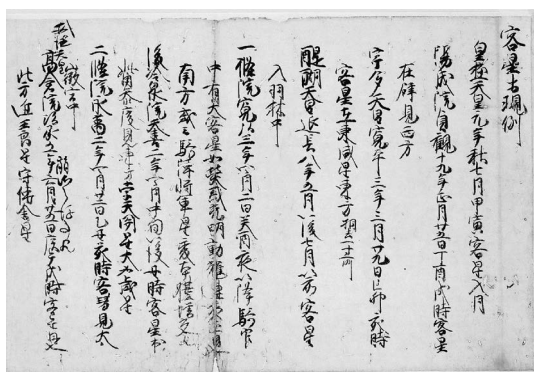 客星古現例
皇極天皇元年秋七月甲寅客星入月
陽成院貞觀十九年正月廿五日丁酉戌時客星
在辟見西方
宇多天皇寛平三年三月廿九日己卯亥時
客星在東咸星東方相去一寸所
醍醐天皇延長八年五月以後七月以前客星
入羽林中
一條院寛弘三年四月二日癸酉夜以降騎官
中有大客星如熒惑光明動耀連夜正見
南方或云騎陣將軍星變本體増光歟
後冷泉院天喜二年四月中旬以後丑時客星出
觜參度見東方孛天関星大如歳星
二條院永萬二年四月廿二日乙丑亥時客星彗見大
微宮中
高倉院治承五年六月廿五日庚午戌時客星見
北方近王良星守傳舍星